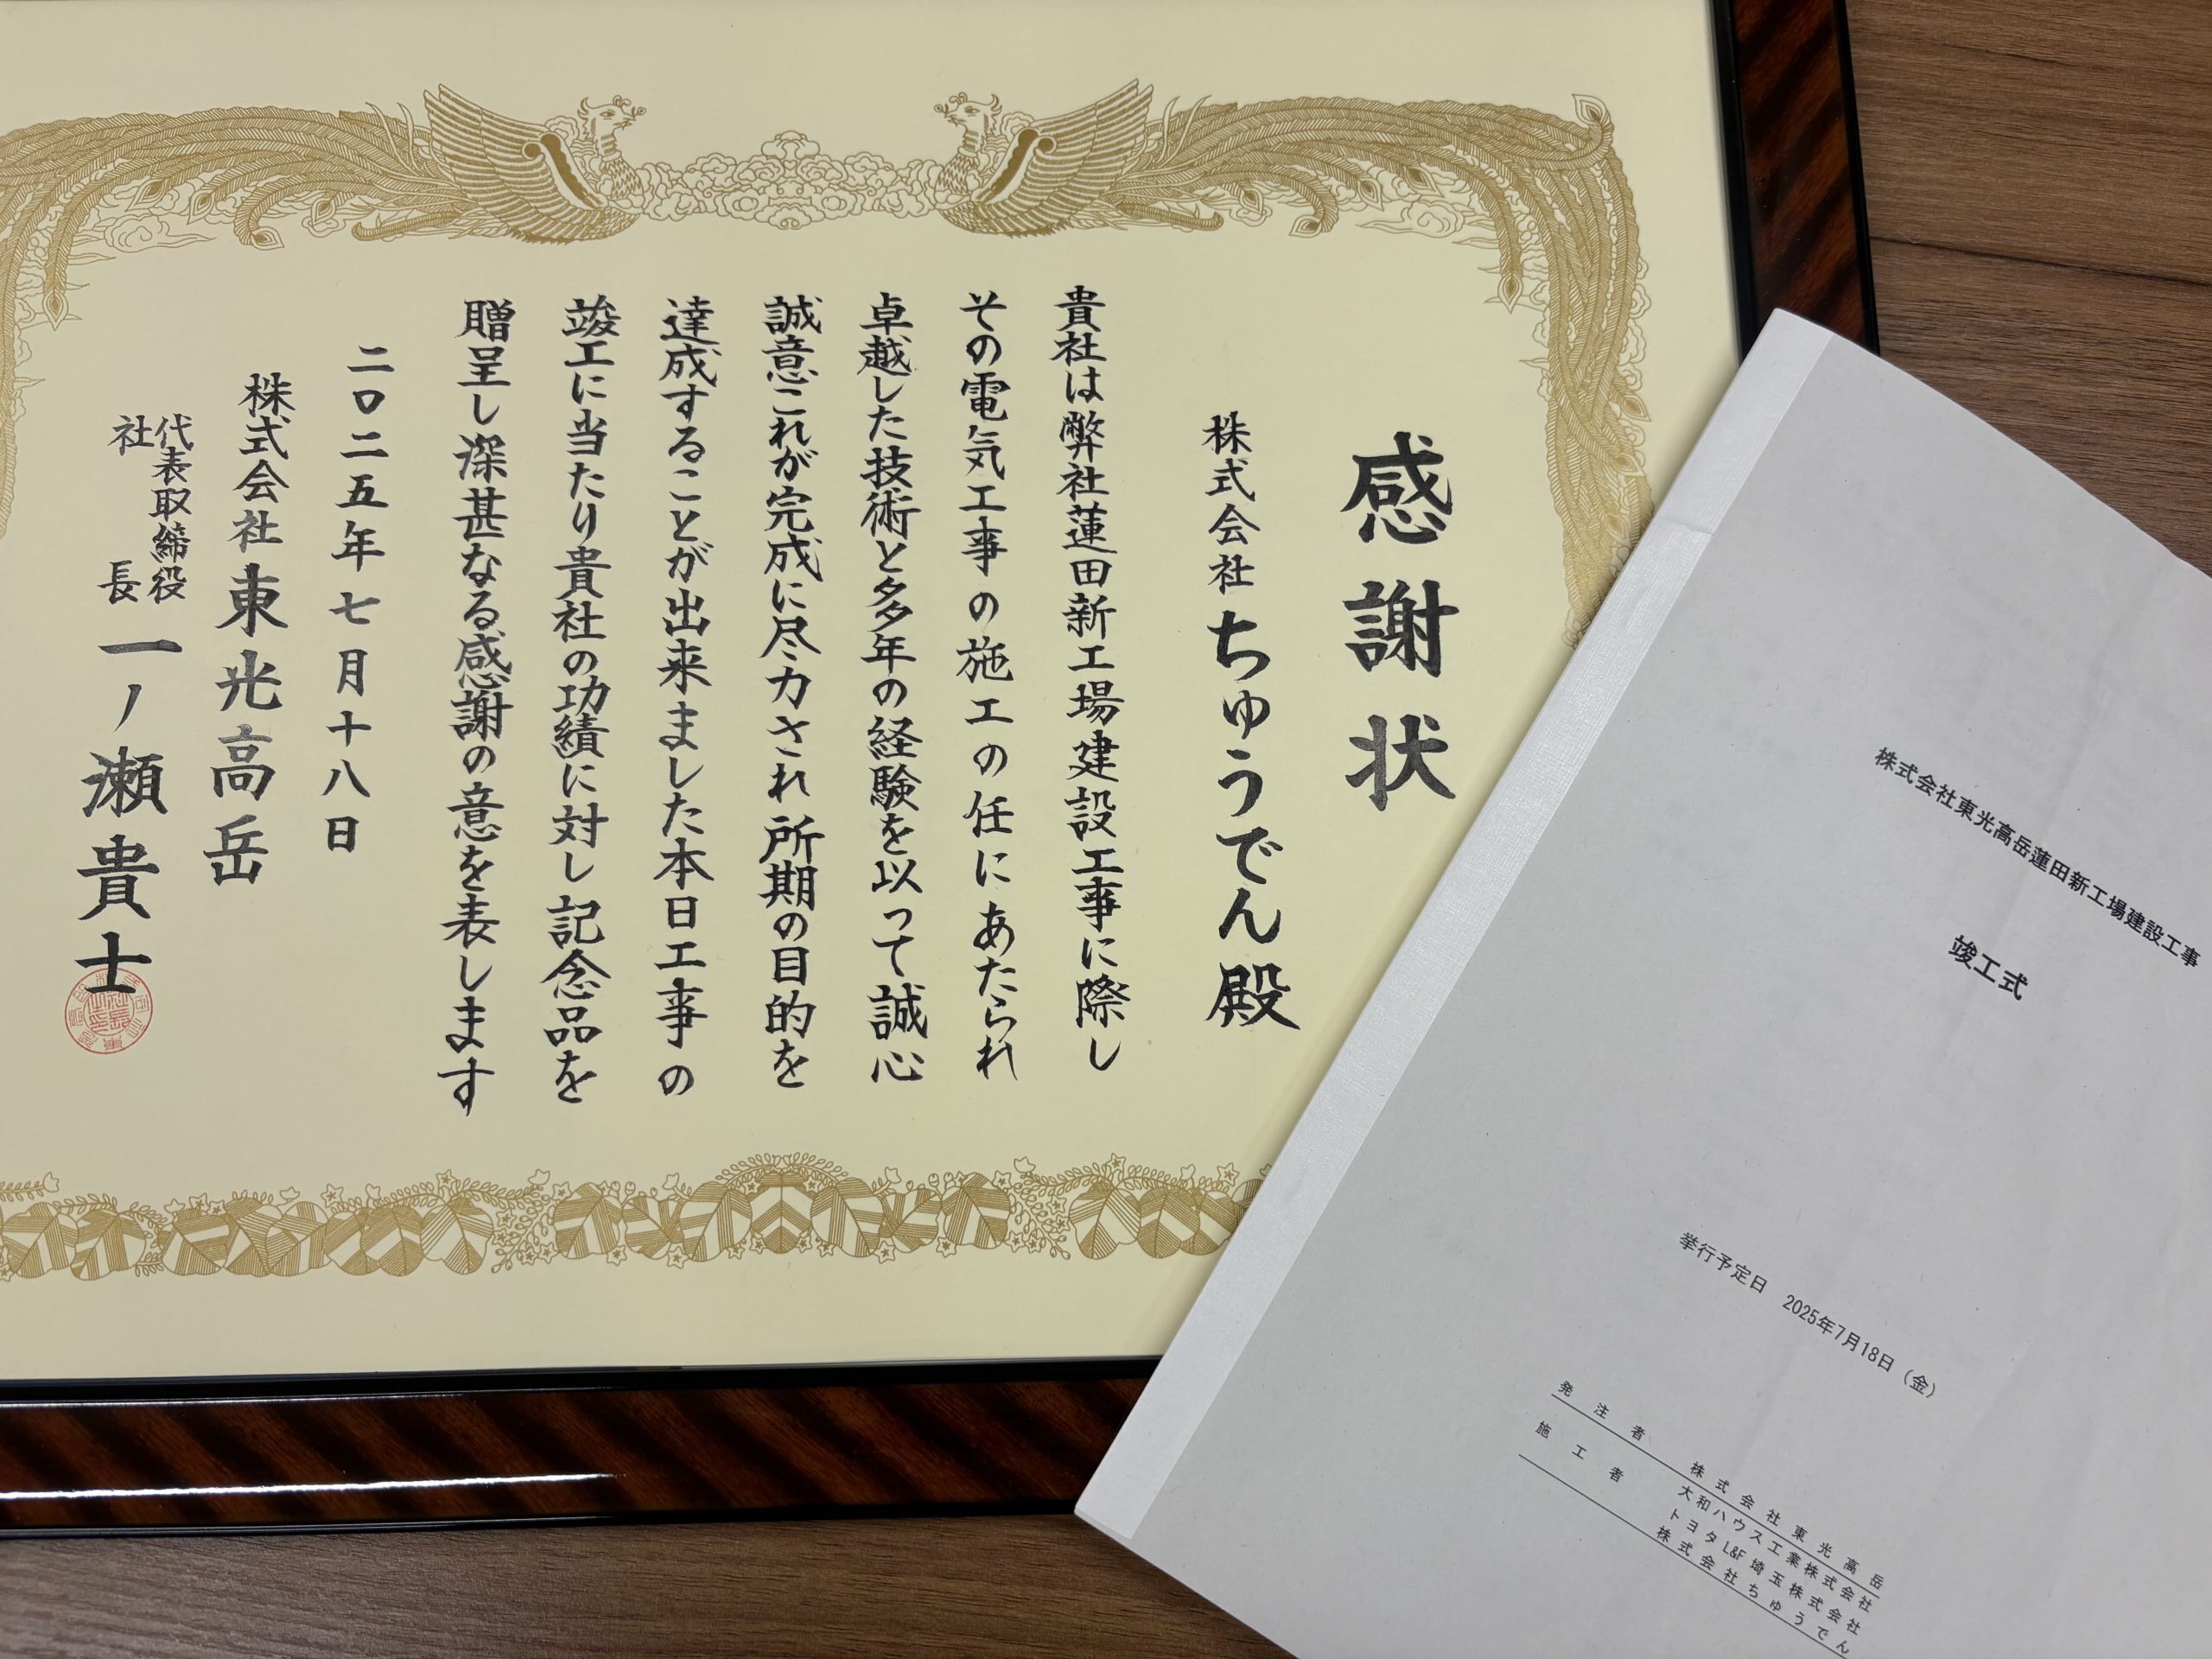 感謝状
株式会社ちゅうでん殿
貴社は弊社蓮田新工場建設工事に際し
その電気工事の施工の任にあたられ
卓越した技術と多年の経験を以って誠心
誠意これが完成に尽力され所期の目的を
達成することが出来ました本日工事の
竣工に当たり貴社の功績に対し記念品を
贈呈し深甚なる感謝の意を表します
二〇二五年七月十八日
株式会社東光高岳
代表取締役
社長
一ノ瀬貴士
株式会社東光高岳蓮田新工場建設工事
竣工式
挙行予定日 2025年7月18日（金）
発注者 株式会社東光高岳
施工者 大和ハウス工業株式会社
トヨタL&F埼玉株式会社
株式会社ちゅうでん